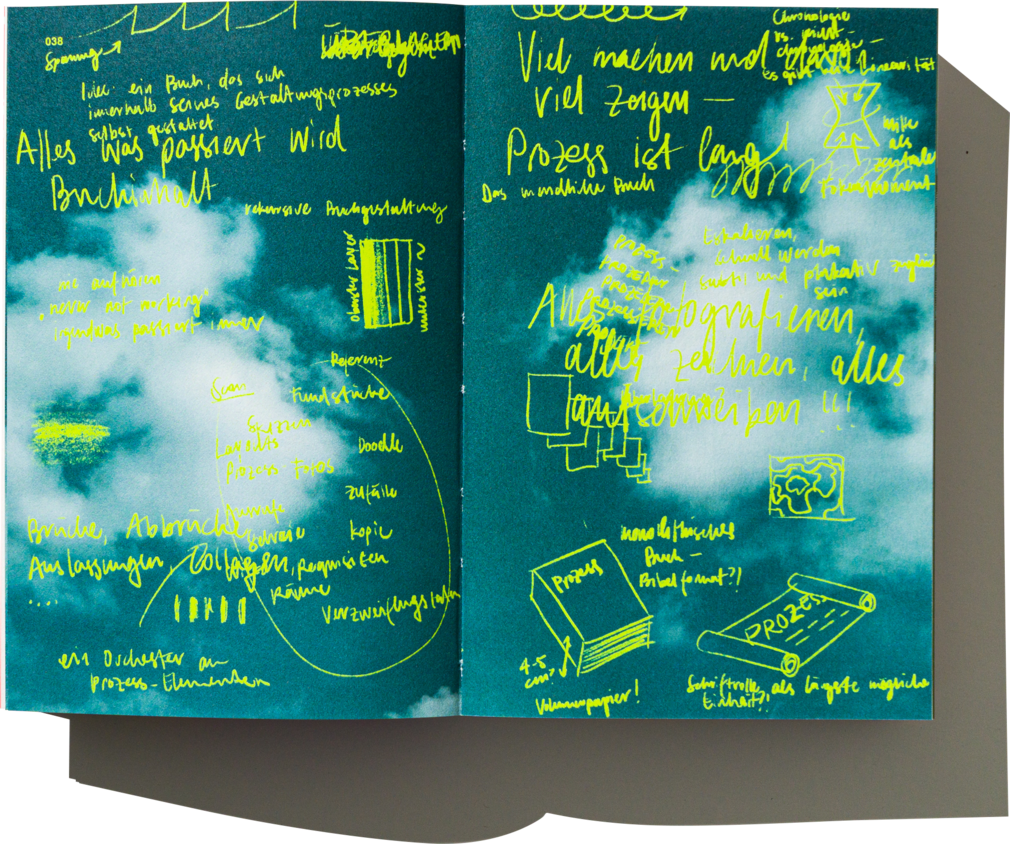 038
Spannung
Idee: ein Buch, das sich
innerhalb seines Gestaltungsprozesses
selbst gestaltet
Alles was passiert wird
Buchinhalt
rekursive Buchgestaltung
oberster Layer
unterster
nie aufhören
"never not working"
irgendwas passiert immer
Referenz
Scan
Fundstücke
Skizzen
Layouts
Doodle
Prozess-Fotos
Zufälle
Kopie
Brüche, Abbrüche
Auslassungen, Collagen, Requisiten
Räume
....
ein Orchester an
Prozess-Elementen
Chronologie
vs. nicht-
es gibt keine Linearität
Viel machen und
viel zeigen —
Prozess ist lang!
Das unendliche Buch
Mitte
als
zentraler
Eskalieren,
schnell werden
und plakativ zugleich
sein
Prozess-
Alles fotografieren,
alles zeichnen, alles
aufschreiben !!!
monolithisches
Buch —
Bibelformat?!
Prozess
4-5
cm?
Volumenpapier!
PROZESS
Schriftrolle, als längste mögliche
Einheit?!